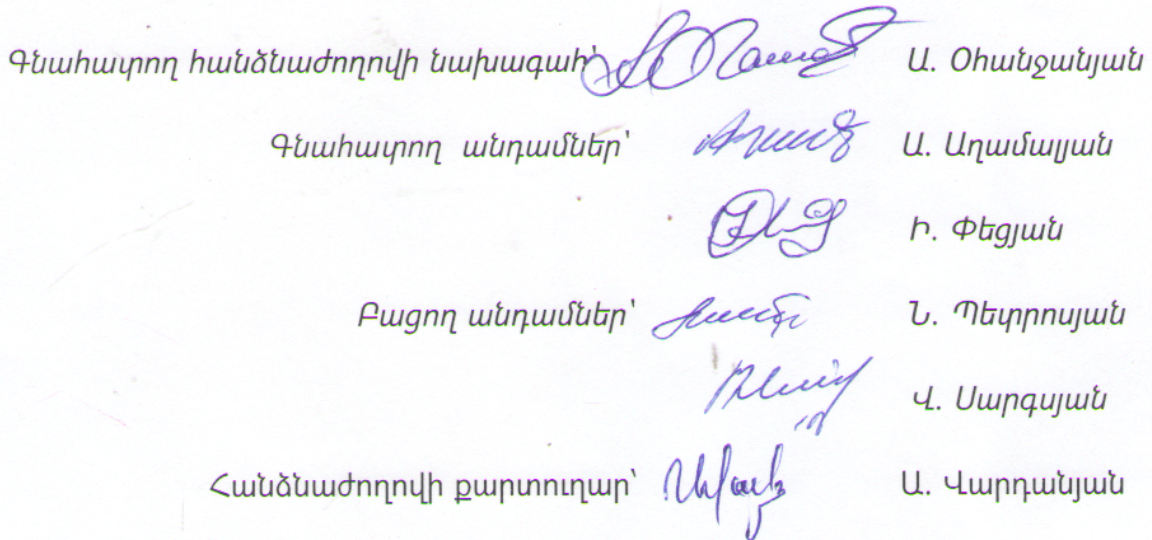 Գնահատող հանձնաժողովի նախագահ՝ Ա. Օհանջանյան
Գնահատող անդամներ՝ Ա. Աղամալյան
Ի. Փեցյան
Բացող անդամներ՝ Ն. Պետրոսյան
Վ. Սարգսյան
Հանձնաժողովի քարտուղար՝ Ա. Վարդանյան